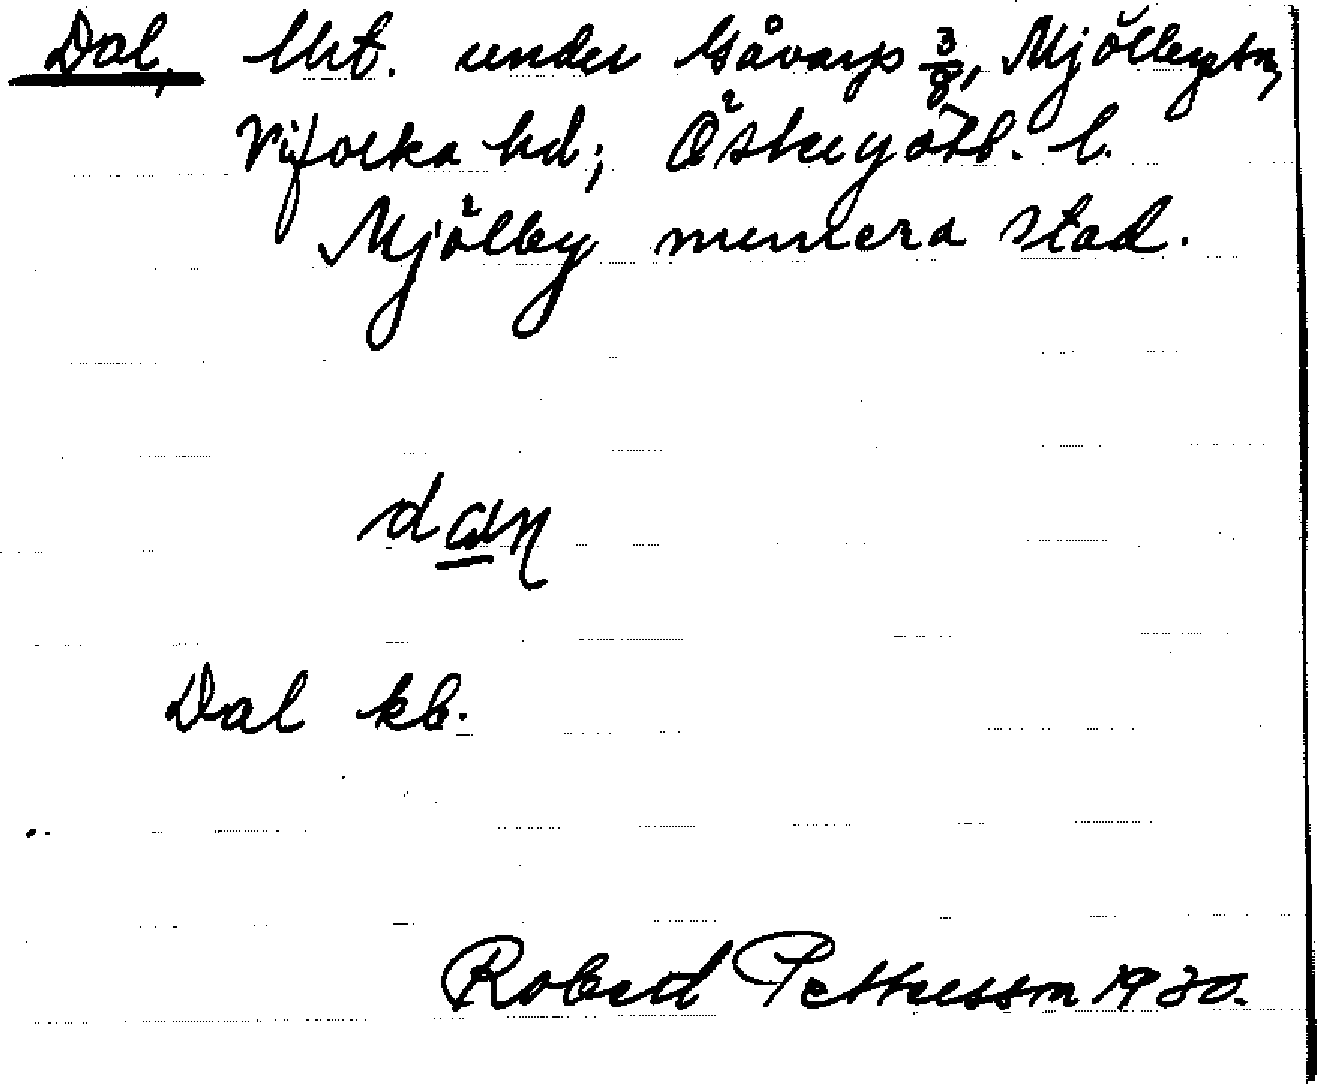 Dal, Lht. under Gåvarp 3/8, Mjölby sn,
Vifolka hd; Östergötl. l.
Mjölby numera stad.
Dal kb.
Robert Pettersson 1930.